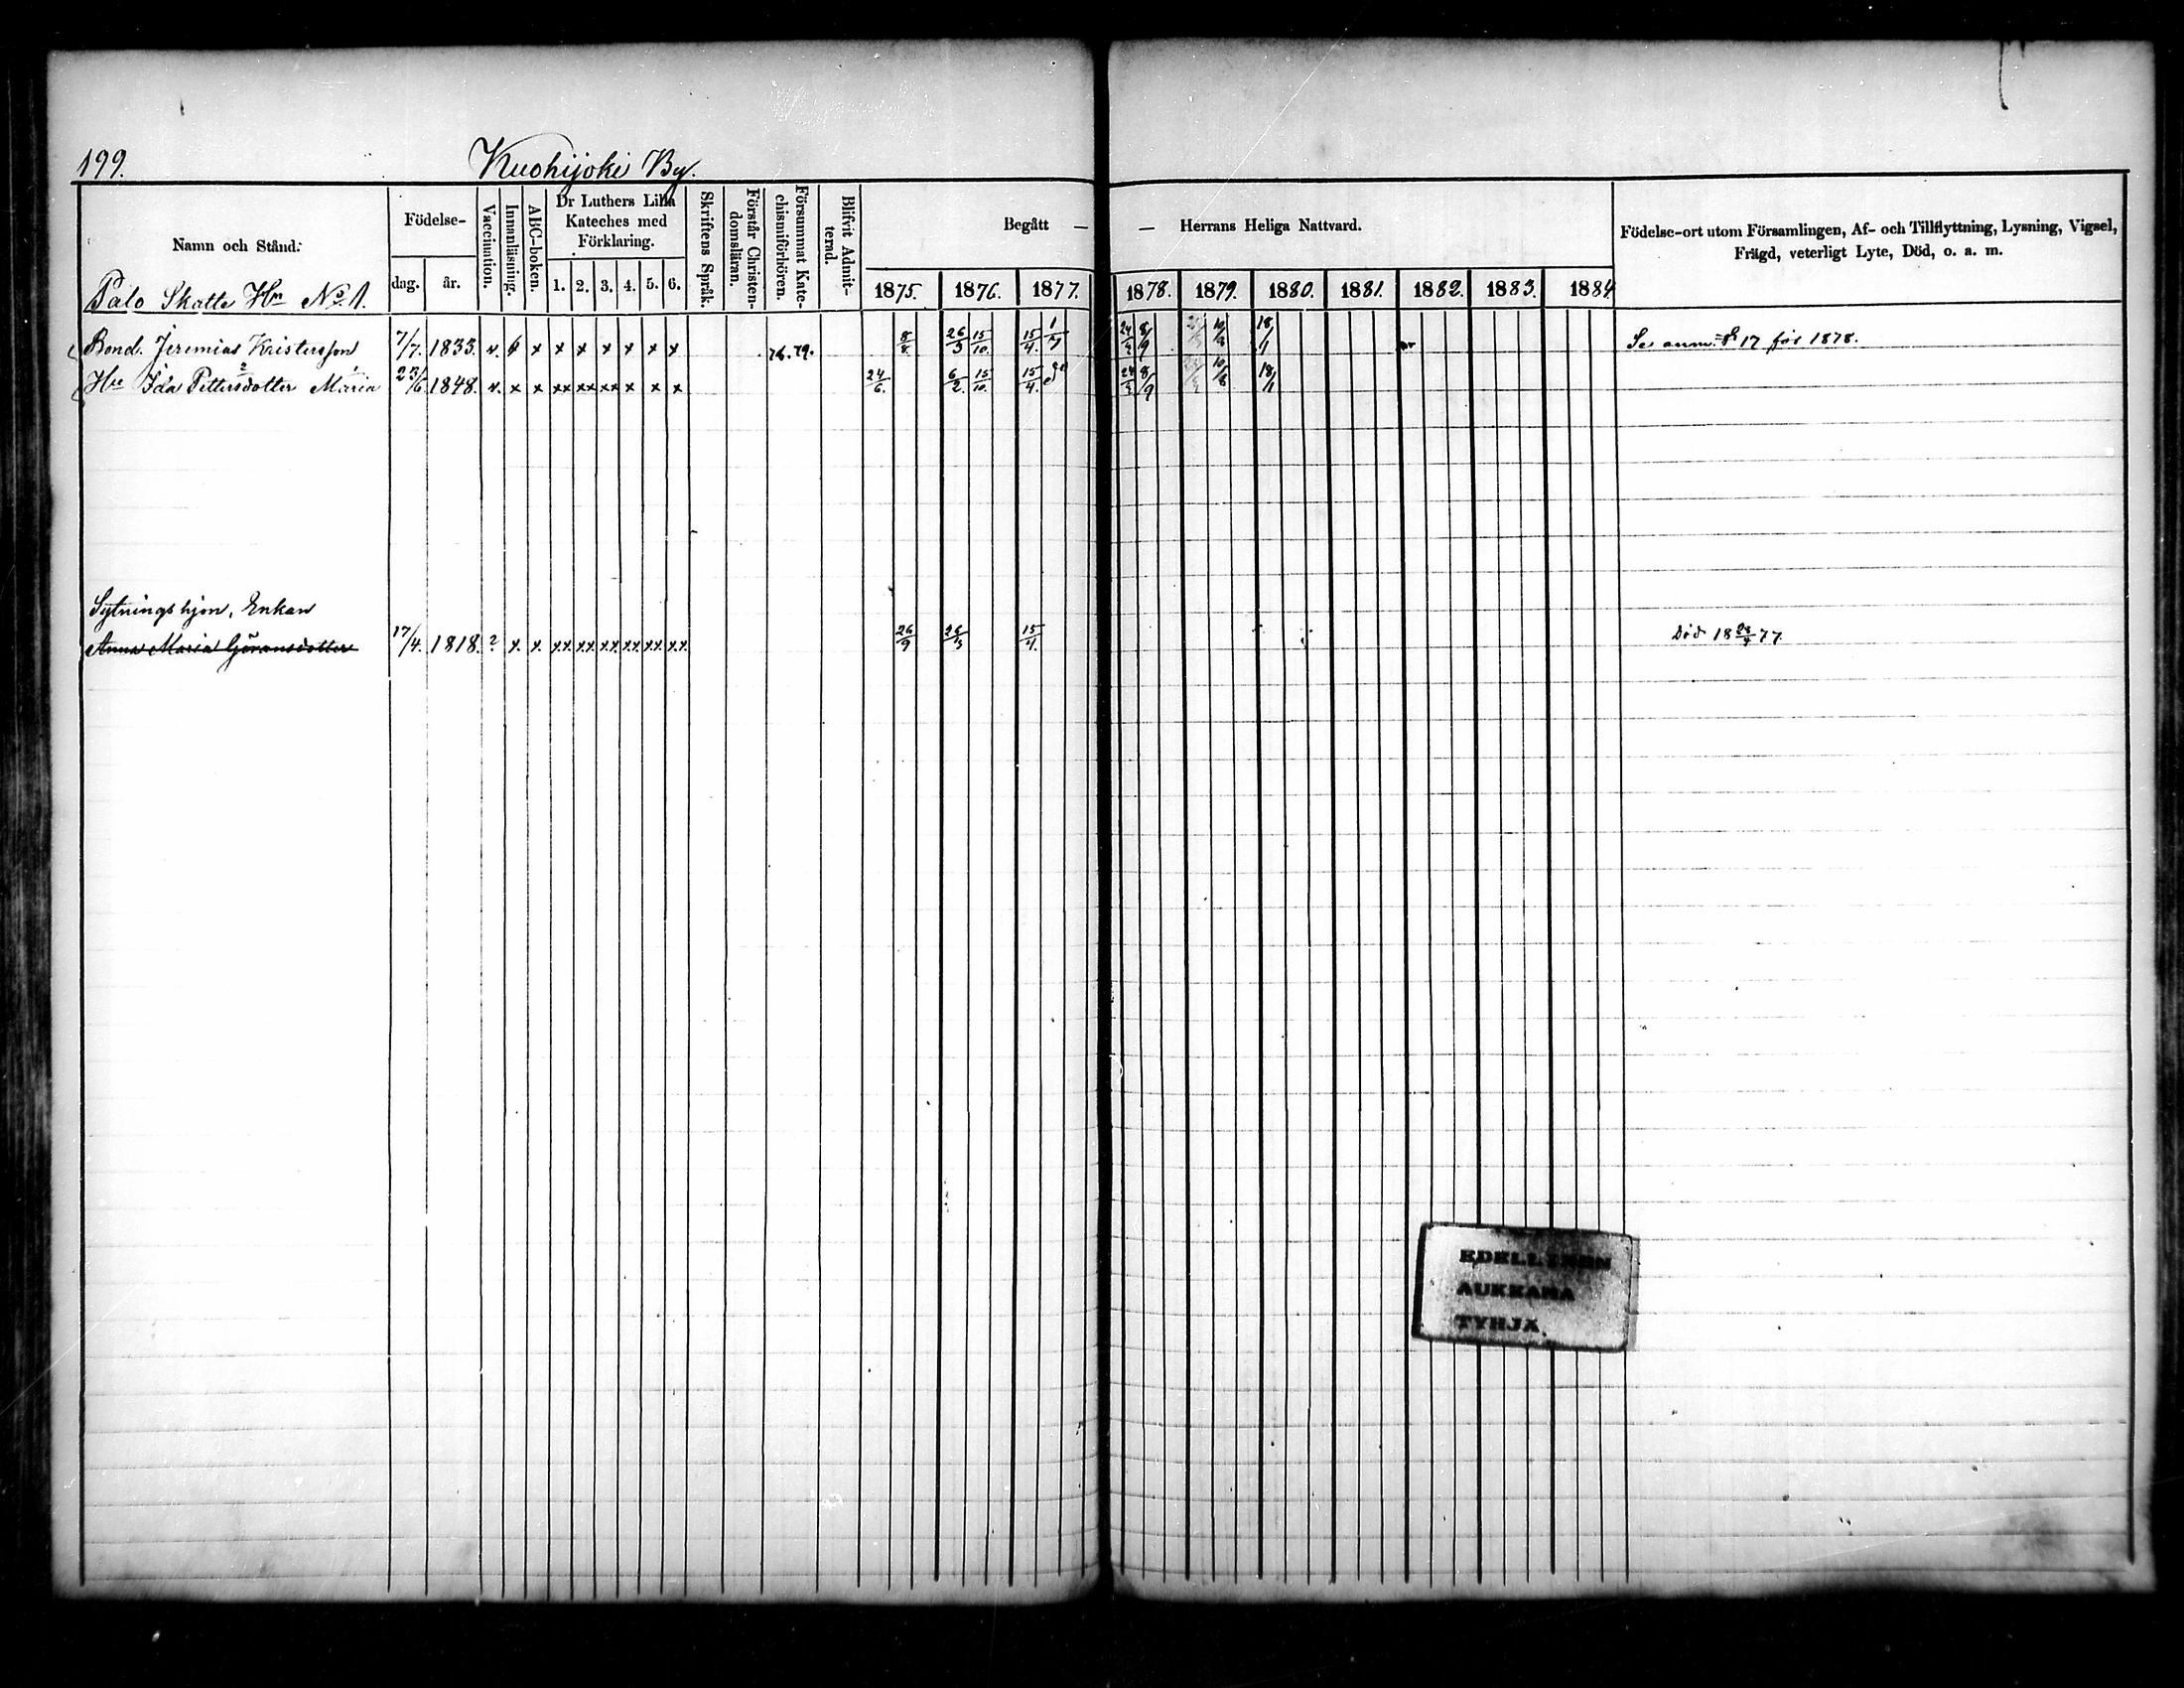 199.
Kuohijoki By.
Namn och Stånd.
Födelse-
dag.
år.
Vaccination.
Innanläsning.
ABC-boken.
Dr Luthers Lilla
Kateches med
Förklaring.
1. 2. 3. 4. 5. 6.
Skriftens Språk.
Förstår Christen-
domsläran.
Försummat Kate-
chismiförhören.
Blifvit Admit-
terad.
Begått — — Herrans Heliga Nattvard.
1875. 1876. 1877. 1878. 1879. 1880. 1881. 1882. 1883. 1884
Födelse-ort utom Församlingen, Af- och Tillflyttning, Lysning, Vigsel,
Frägd, veterligt Lyte, Död, o. a. m.
Palo Skatte Hn No 1.
Bond. Jeremias Kristersson 7/7. 1833. v. x x x x x x x 76. 79. 26/3 15/10. 15/4. 8/9 18/1 Se anm. 17 för 1878.
Hu Ida Pettersdotter Maria 23/6. 1848. v. x x xx xx xx x x x 24/6. 6/2. 15/10. 15/4. 8/9 10/8 18/1
Sytningshjon, Enkan
Anna Maria Göransdotter 17/4. 1818. ? x. x. xx xx xx xx xx xx 26/9 26/3 15/4. Död 18 77.
EDELLINEN
AUKKAMA
TYHJÄ.